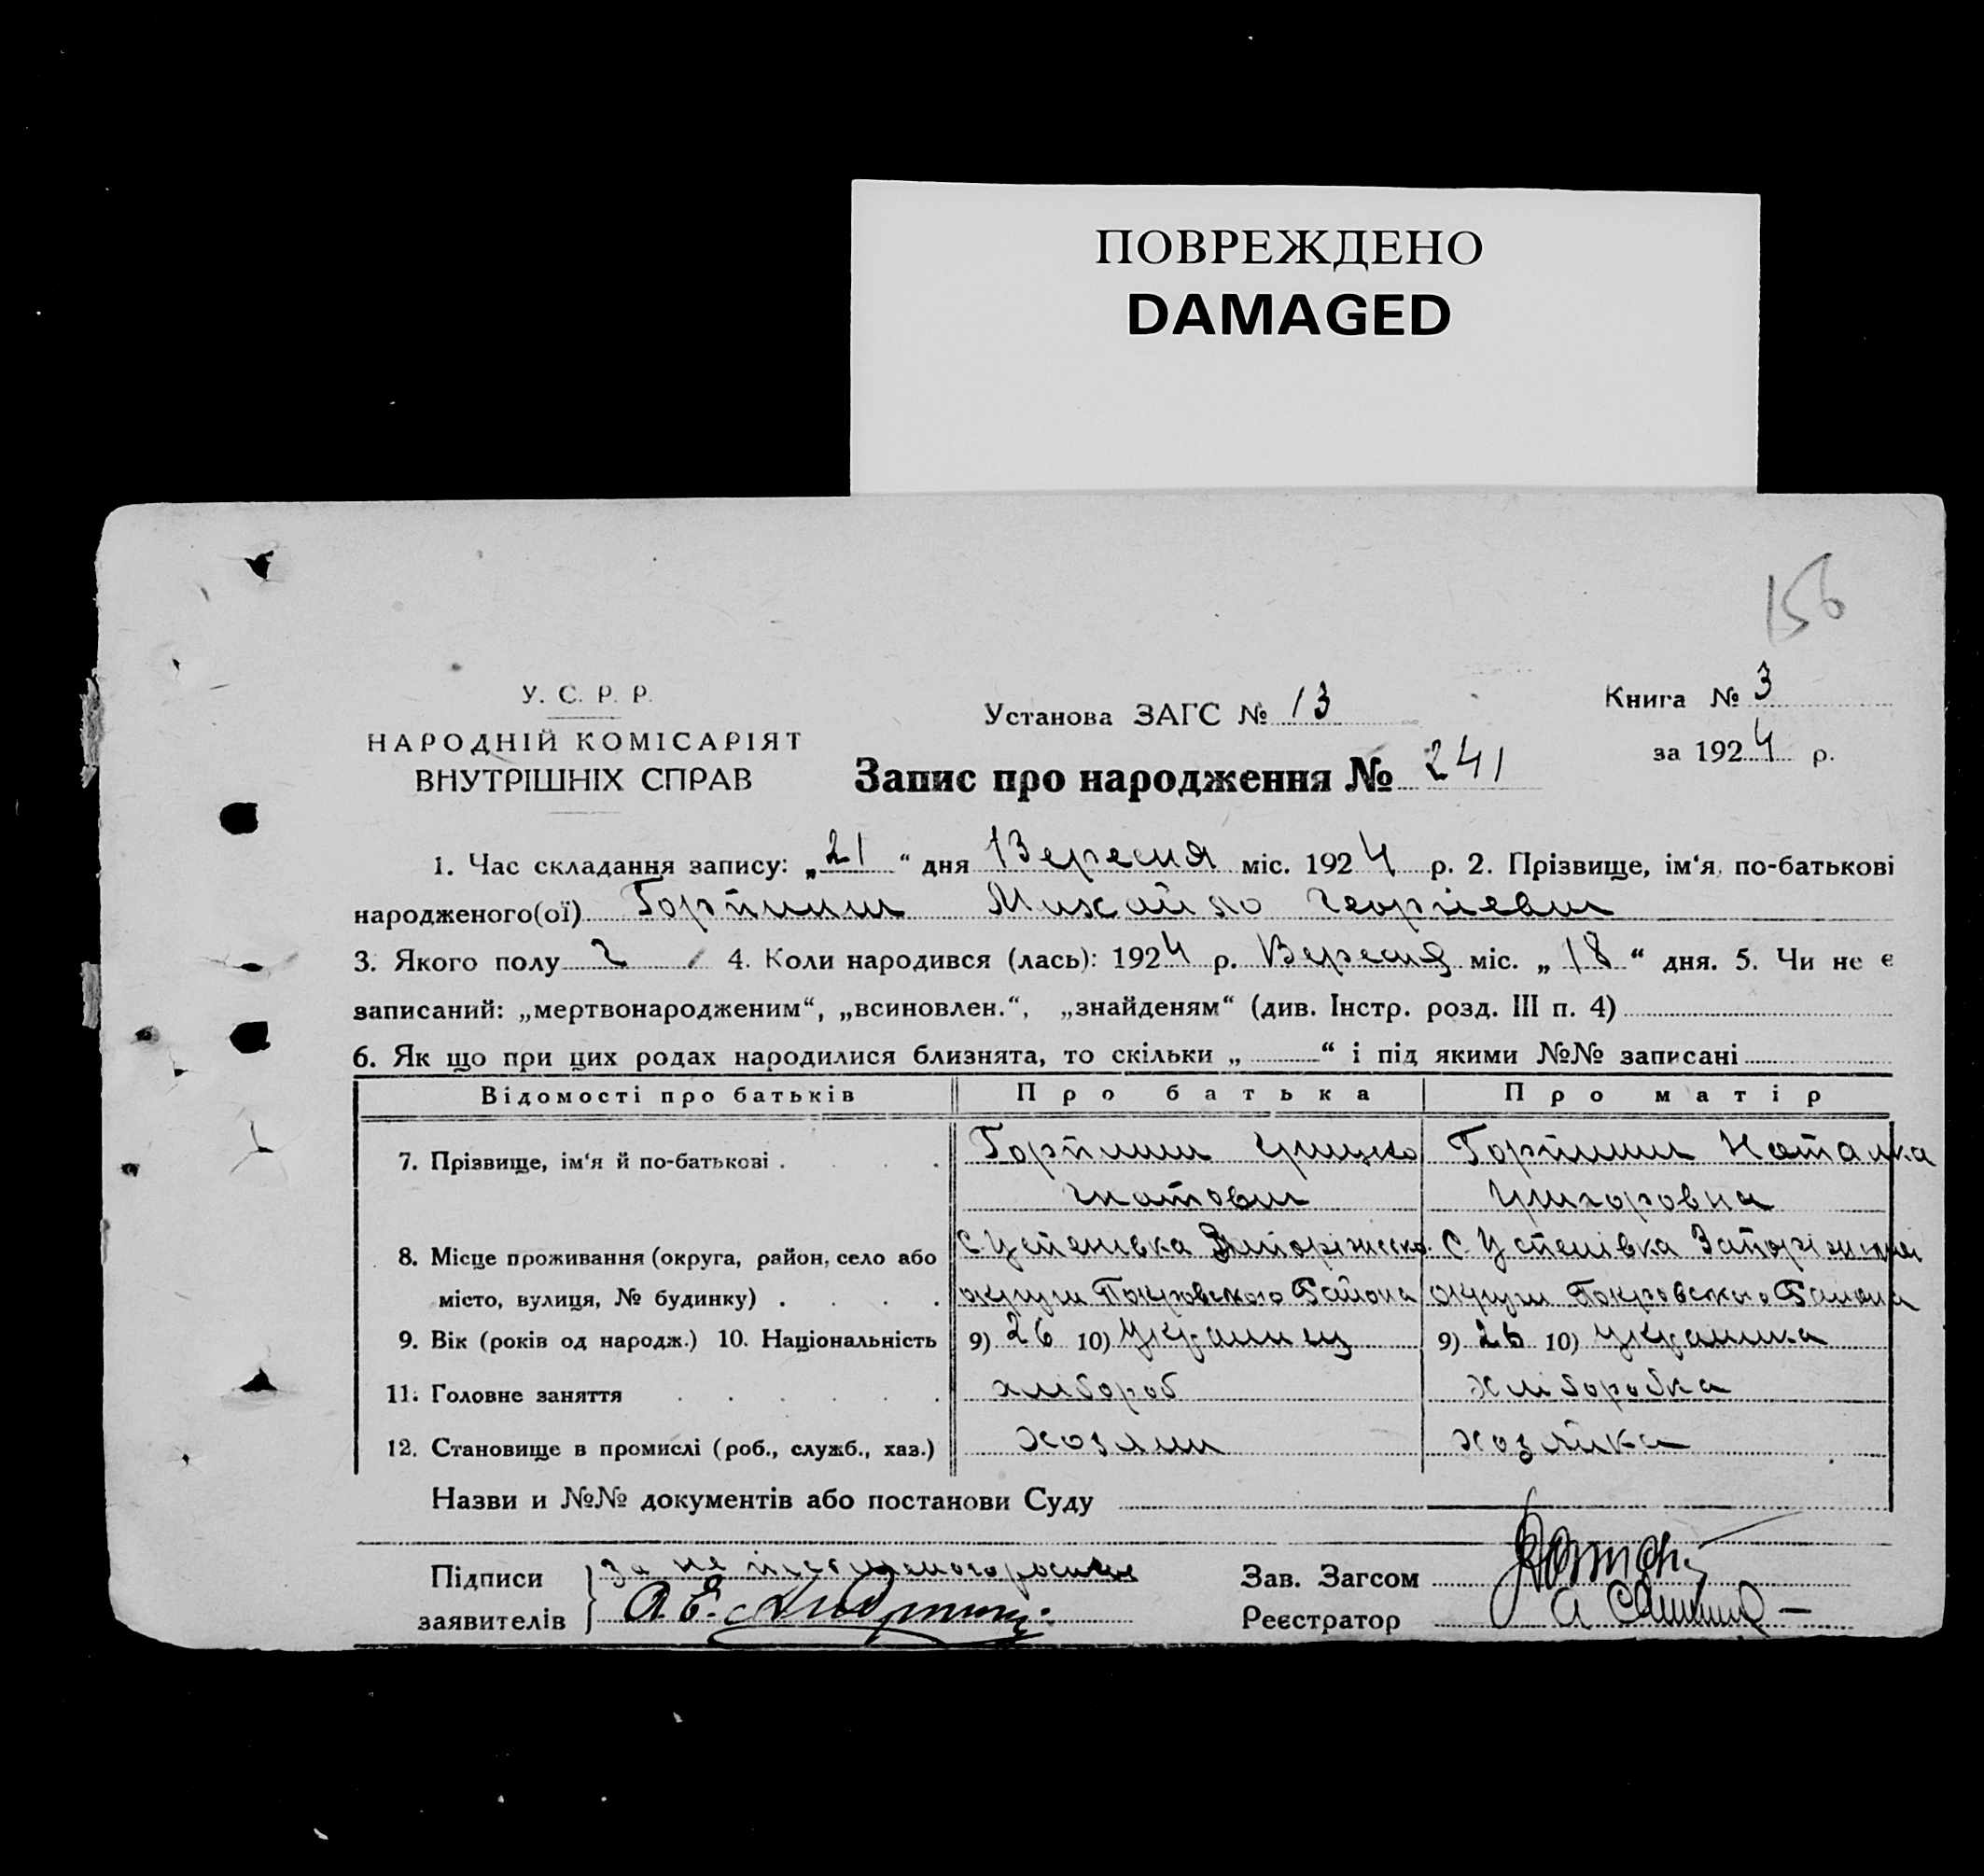 ПОВРЕЖДЕНО
DAMAGED
156
У. С. Р. Р.
НАРОДНІЙ КОМІСАРІЯТ
ВНУТРІШНІХ СПРАВ
Установа ЗАГС № 13
Книга № 3
за 1924 р.
Запис про народження № 241
1. Час складання запису: „21“ дня Вересня міс. 1924 р. 2. Прізвище, ім‘я, по-батькові
народженого(ої) Михайло Георгіевич
3. Якого полу ч 4. Коли народився (лась): 1924 р. Вересня міс. „18“ дня. 5. Чи не є
записаний: „мертвонародженим“, „всиновлен.“, „знайденям“ (див. Інстр. розд. III п. 4)
6. Як що при цих родах народилися близнята, то скільки „ “ і під якими №№ записані
Відомості про батьків Про батька Про матір
7. Прізвище, ім‘я й по-батькові Грицко Наталка
Гнатович Григоровна
8. Місце проживання (округа, район, село або С Успенівка С Успенівка
місто, вулиця, № будинку) округи Покровского Района округи Покровского Района
9. Вік (років од народж.) 10. Національність 9) 26 10) Украинец 9) 26 10) Украинка
11. Головне заняття хлібороб хліборобка
12. Становище в промислі (роб., служб., хаз.) хозяин хозяйка
Назви и №№ документів або постанови Суду
Підписи За
заявителів
Зав. Загсом
Реєстратор